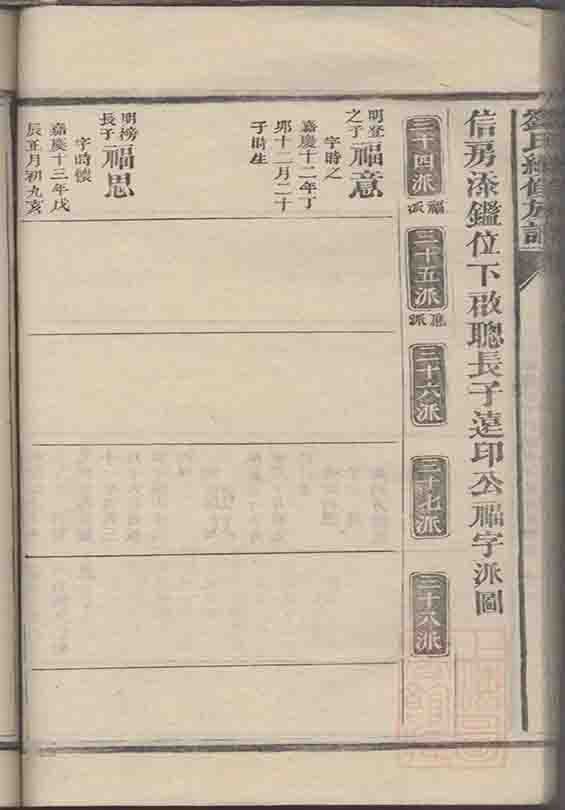 劉氏續修族譜
信房添鑑位下啟聰長子遠印公福字派圖
二十四派
福派
二十五派
應派
二十六派
二十七派
二十八派
明登
之子
福意
字時之
嘉慶十二年丁
卯十二月二十
子時生
明榜
長子
福思
字時懷
嘉慶十三年戊
辰五月初九亥